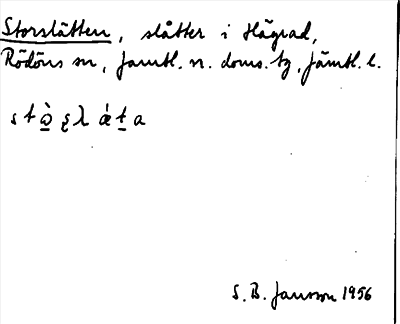 Storslätten, slåtter i Hägrad,
Rödöns sn, Jämtl. n. doms. tg, Jämtl. l.
stò̱ʂλǽṯa
S. B. Jansson 1956